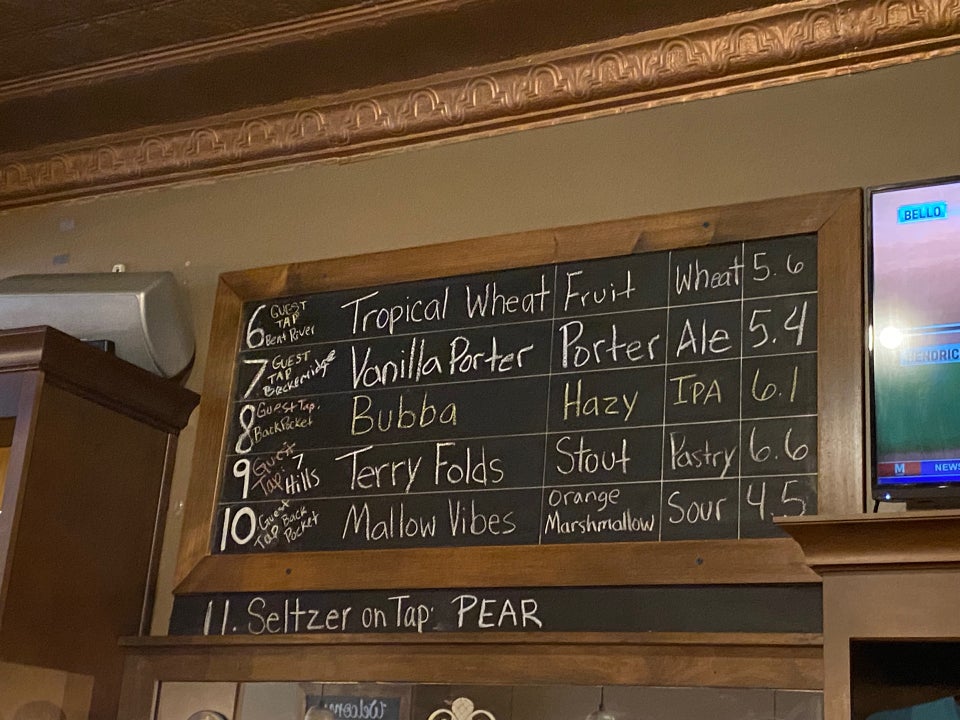 6 GUEST TAP Bent River Tropical Wheat Fruit Wheat 5.6
7 GUEST TAP Breckenridge Vanilla Porter Porter Ale 5.4
8 Guest Tap. Back Pocket Bubba Hazy IPA 6.1
9 Guest Tap 7 Hills Terry Folds Stout Pastry 6.6
10 Guest Tap Back Pocket Mallow Vibes Orange Marshmallow Sour 4.5
11. Seltzer on Tap: PEAR
BELLO
HENDRIC
M NEWS
Welcome